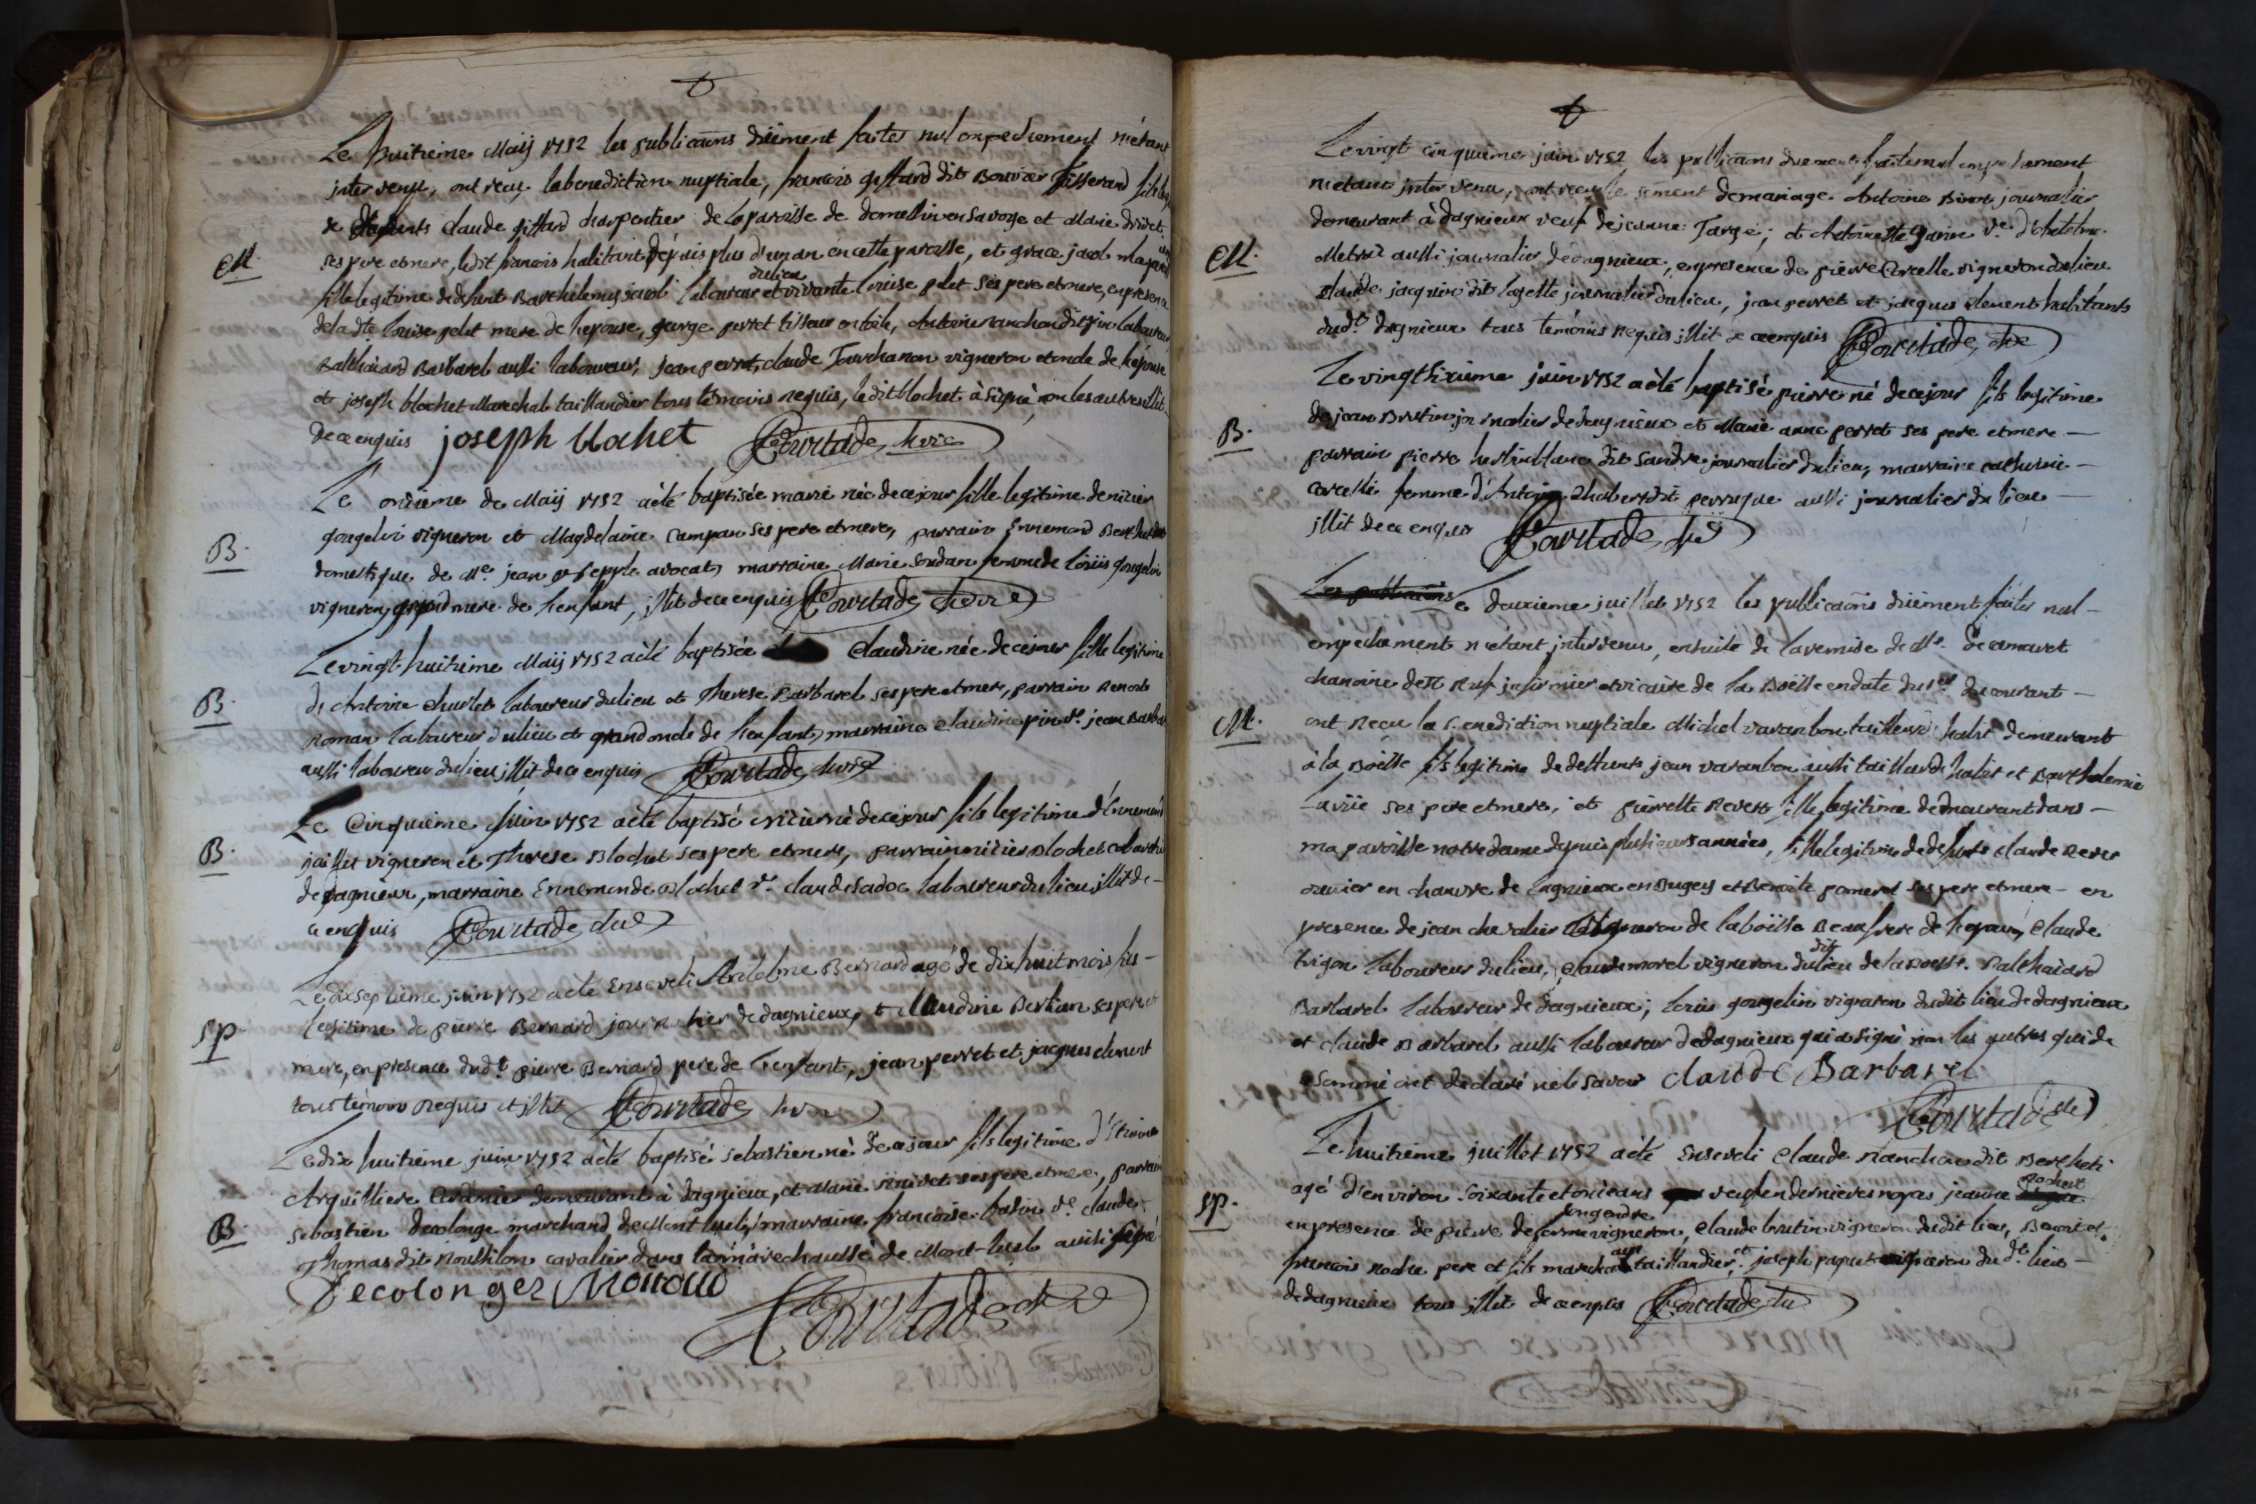 Le huitième Maÿ 1752 les publicaons düement faites nul empechement n'étant
intervenu, ont reçu la benediction nuptiale, françois gissard dit Bouvier Tisserand fils leg
de deffunts claude gissard charpentier de la paroisse de domessin en Savoye et Marie drivet
ses pere et mere, ledit francois habitant depuis plus d'un an en cette paroisse, et grace jacob
M.
fille legitime de deffunt Barthelemy jacob laboureur du lieu et vivante Louise pelet ses pere et mere, en presence
de la dte Louise pelet mere de l'epouse, george perret tisseur en toile, Antoine ranchon dit laboureur
Balthazard Barbarel aussi laboureur, jean perret, claude Tourchanon vigneron et oncle de l'epouse
et joseph blochet Marechal taillandier tous témoins requis, ledit blochet a signé non les autres illit.
de ce enquis joseph blochet Courtade
Le onzième de Maÿ 1752 a été baptisée marie née de ce jour fille legitime de nizier
gougelin vigneron et Magdelaine campan ses pere et mere, parrain Ennemond
B.
domestique de Me. jean avocat, marraine Marie femme de Loüis gougelin
vigneron grand mere de l'enfant, illit. de ce enquis Courtade
Le vingt huitième Maÿ 1752 a été baptisée Claudine née de ce jour fille legitime
B.
de Antoine laboureur du lieu et Therese Barbarel ses pere et mere, parrain
Roman laboureur du lieu et grand oncle de l'enfant, marraine claudine pin ve. jean
aussi laboureur du lieu illit de ce enquis Courtade
Le Cinquième Juin 1752 a été baptisé nizier né de ce jour fils legitime d'Ennemond
B.
jaillet vigneron et Therese Blochet ses pere et mere, parrain nizier Blochet
de Dagnieux, marraine Ennemonde Blochet ve. claude sadoc laboureur du lieu illit de
ce enquis Courtade
Le dix septième juin 1752 a été enseveli Antelme Bernard agé de dix huit mois fils
SP.
legitime de pierre Bernard journalier de dagnieux, et claudine Berlion ses pere et
mere, en presence dudt pierre Bernard pere de l'enfant, jean perret et jacques clement
tous témoins requis et illit Courtade
Le dix huitième juin 1752 a été baptisé Sebastien né de ce jour fils legitime d'Etienne
Arquilliere demeurant à dagnieux, et Marie ses pere et mere, parrain
B.
Sebastien decolonge marchand de Mont luel, marraine françoise badin ve. claude
Thomas dit Roussillon cavalier dans la maréchaussé de Mont-luel
Decolonges Monoud
Courtade
Le vingt cinquième juin 1752 les publicaons duement faites nul empechement
n'étant intervenu, ont reçu le sement de mariage Antoine journalier
demeurant à dagnieux veuf de jeanne Targe; et Antoinette garin ve. d'Antelme
M.
aussi journalier de dagnieux, en presence de pierre Carelle vigneron du lieu
claude jacquin dit journalier du lieu, jean perret et jacques clement habitants
dudt. dagnieux tous temoins requis illit de ce enquis Courtade
Le vingt sixième juin 1752 a été baptisé pierre né de ce jour fils legitime
B.
de jean Brutin journalier de dagnieux et Marie anne perret ses pere et mere
parrain pierre dit Sandre journalier du lieu, marraine catherine
femme d'Antoine Chabert dit perruque aussi journalier du lieu
illit de ce enquis Courtade
Le deuxieme juillet 1752 les publicaons düement faites nul
empechement n'étant intervenu, ensuite de la remise de Mr. Decamaret
chanoine infirmier et vicaire de la Boësse en date du 1er du courant
M.
ont reçu la benediction nuptiale Michel varanbon tailleur d'habit demeurant
à la Boësse fils legitime de deffunts jean varanbon aussi tailleur d'habit et Barthelemie
ses pere et mere; et pierrette Rever fille legitime demeurant dans
ma paroisse notre dame depuis plusieurs années, fille legitime de deffunt claude Rever
ouvrier en chanvre de lagnieux en Bugey et Benoite pomeret ses pere et mere en
presence de jean chevalier vigneron de la boësse Beau frere de l'epoux, claude
Trigon laboureur du lieu, claude morel vigneron dudit lieu de la Boesse. Balthazard
Barbarel laboureur de dagnieux; Louis gougelin vigneron dudit lieu de dagnieux
et claude Barbarel aussi laboureur de dagnieux qui a signé non les autres qui de
ce sommé ont declaré ne le savoir claude Barbarel
Courtade
Le huitième juillet 1752 a été enseveli claude Ranchon dit
agé d'environ soixante et onze ans veuf en dernieres noces jeanne Rochet
SP.
en presence de pierre vigneron son gendre, claude brutin vigneron dudit lieu, Benoit et
francois Roche pere et fils marechaux taillandier, et joseph paput vigneron dudt. lieu
de dagnieux tous illit de ce enquis Courtade